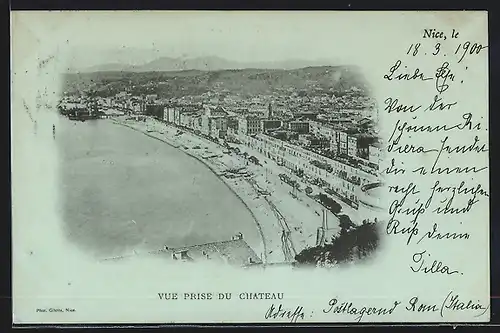 Nice, le
18. 3. 1900
Liebe
Von der
schönen Ri-
viera sendet
dir einen
recht herzlichen
Gruß und
Kuß deine
Tilla.
VUE PRISE DU CHATEAU
Phot. Giletta, Nice.
Adresse: Postlagernd Rom (Italia)